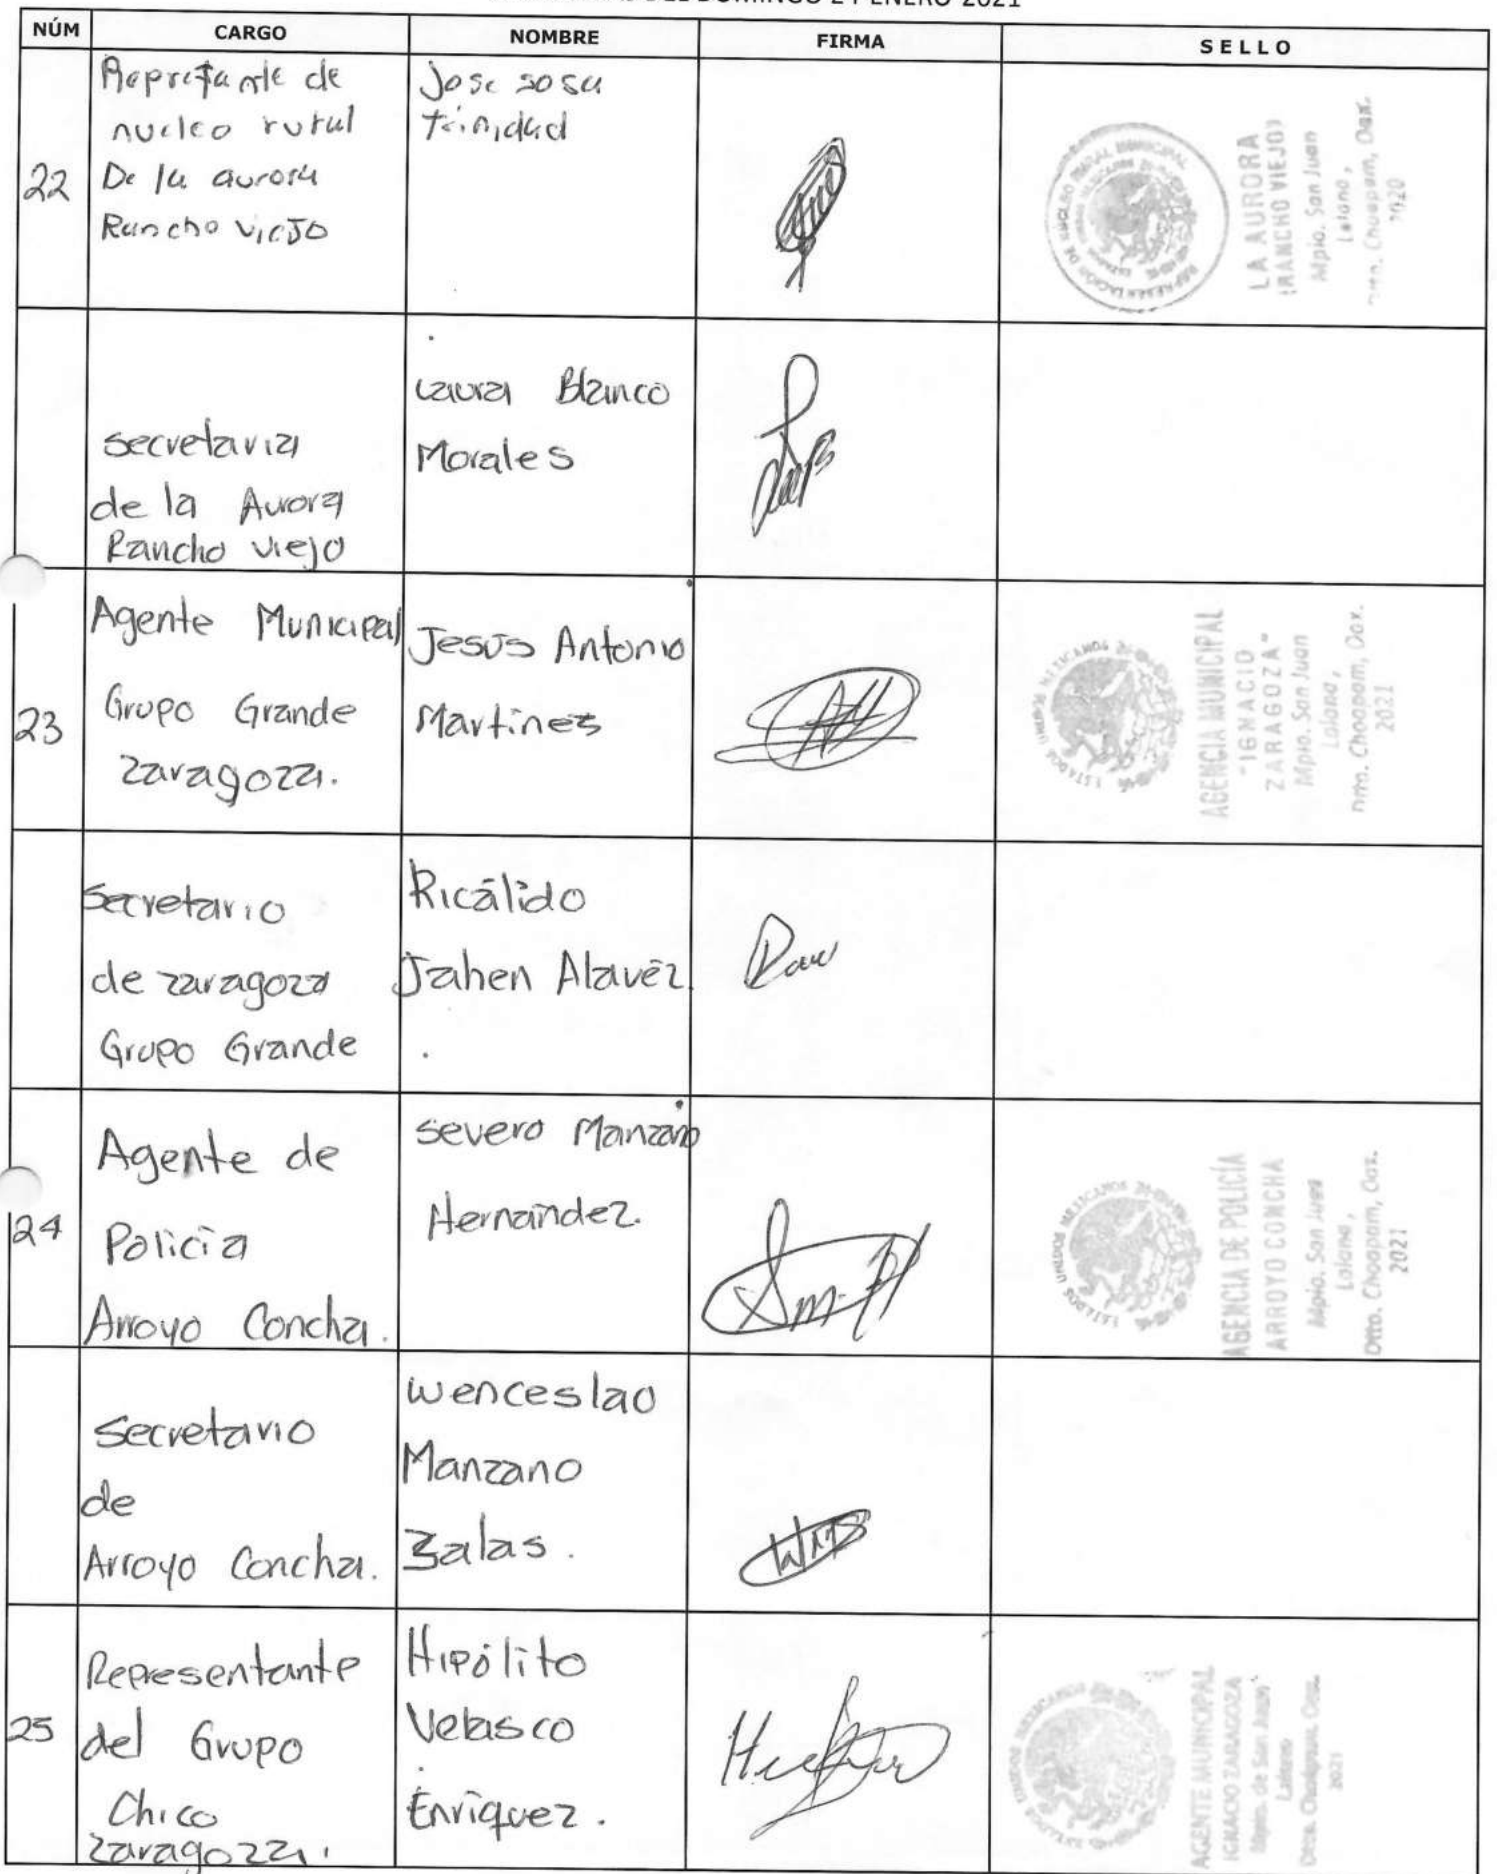 DOMINGO 24 ENERO 2021
NÚM CARGO NOMBRE FIRMA SELLO
22
Repretante de
nucleo rural
De la aurora
Rancho viejo
Jose sosa
trinidad
LA AURORA
(RANCHO VIEJO)
Mpio. San Juan
Lalana,
Choapam, Oax.
2020
secretaria
de la Aurora
Rancho viejo
Laura Blanco
Morales
23
Agente Municipal
Grupo Grande
zaragoza.
Jesús Antonio
Martinez
ESTADOS UNIDOS MEXICANOS
AGENCIA MUNICIPAL
"IGNACIO
ZARAGOZA"
Mpio. San Juan
Lalana,
Dtto. Choapam, Oax.
2021
secretario
de zaragoza
Grupo Grande
Ricálido
Jahen Alavéz
24
Agente de
Policía
Arroyo Concha.
severo Manzano
Hernández.
ESTADOS UNIDOS MEXICANOS
AGENCIA DE POLICÍA
ARROYO CONCHA
Mpio. San Juan
Lalana,
Dtto. Choapam, Oax.
2021
secretario
de
Arroyo Concha.
wenceslao
Manzano
Zalas.
25
Representante
del Grupo
Chico
zaragoza.
Hipólito
Velasco
Enríquez.
ESTADOS UNIDOS MEXICANOS
AGENTE MUNICIPAL
IGNACIO ZARAGOZA
Mpio. de San Juan
Lalana
Dtto. Choapam, Oax.
2021